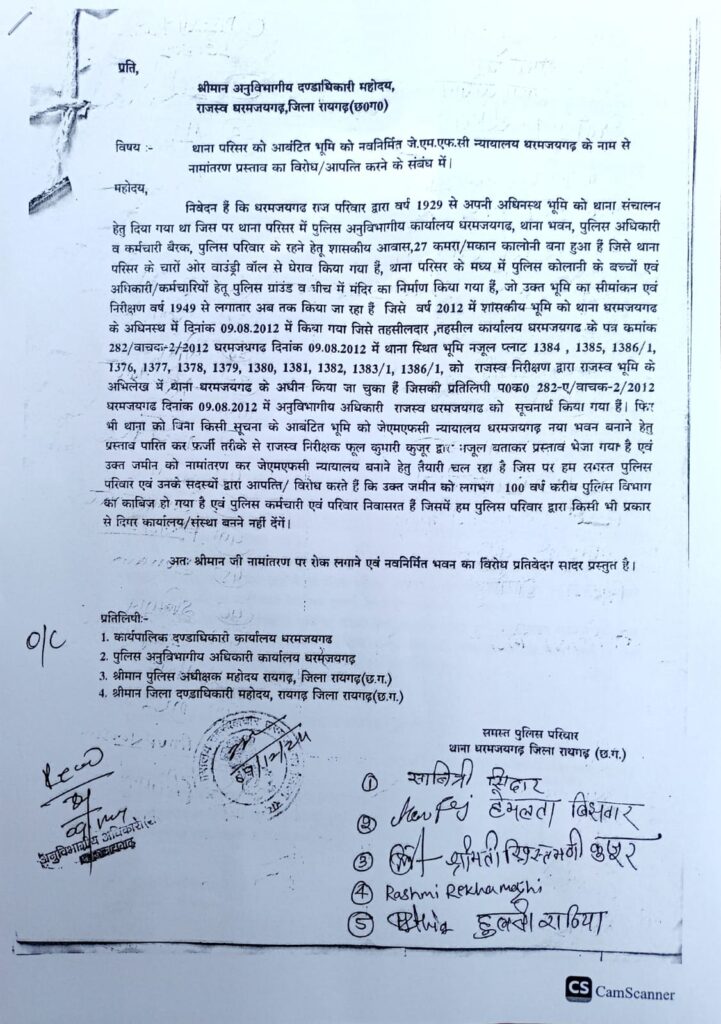 प्रति,
श्रीमान अनुविभागीय दण्डाधिकारी महोदय,
राजस्व धरमजयगढ़,जिला रायगढ़(छ0ग0)
विषय :- थाना परिसर को आबंटित भूमि को नवनिर्मित जे.एम.एफ.सी न्यायालय धरमजयगढ़ के नाम से
नामांतरण प्रस्ताव का विरोध/आपत्ति करने के संबंध में।
महोदय,
निवेदन हैं कि धरमजयगढ राज परिवार द्वारा वर्ष 1929 से अपनी अधिनस्थ भूमि को थाना संचालन
हेतु दिया गया था जिस पर थाना परिसर में पुलिस अनुविभागीय कार्यालय धरमजयगढ, थाना भवन, पुलिस अधिकारी
व कर्मचारी बैरक, पुलिस परिवार के रहने हेतु शासकीय आवास,27 कमरा/मकान कालोनी बना हुआ हैं जिसे थाना
परिसर के चारों ओर वाउंड्री वॉल से घेराव किया गया हैं, थाना परिसर के मध्य में पुलिस कोलानी के बच्चों एवं
अधिकारी/कर्मचारियों हेतु पुलिस ग्रांउड व बीच में मंदिर का निर्माण किया गया हैं, जो उक्त भूमि का सीमांकन एवं
निरीक्षण वर्ष 1949 से लगातार अब तक किया जा रहा हैं जिसे वर्ष 2012 में शासकीय भूमि को थाना धरमजयगढ
के अधिनस्थ में दिनांक 09.08.2012 में किया गया जिसे तहसीलदार ,तहसील कार्यालय धरमजयगढ के पत्र कमांक
282/वाचक-2/2012 धरमजयगढ दिनांक 09.08.2012 में थाना स्थित भूमि नजूल प्लाट 1384 , 1385, 1386/1,
1376, 1377, 1378, 1379, 1380, 1381, 1382, 1383/1, 1386/1, को राजस्व निरीक्षण द्वारा राजस्व भूमि के
अभिलेख में थाना धरमजयगढ के अधीन किया जा चुका हैं जिसकी प्रतिलिपी प0क0 282-ए/वाचक-2/2012
धरमजयगढ दिनांक 09.08.2012 में अनुविभागीय अधिकारी राजस्व धरमजयगढ को सूचनार्थ किया गया हैं। फिर
भी थाना को बिना किसी सूचना के आबंटित भूमि को जेएमएफसी न्यायालय धरमजयगढ़ नया भवन बनाने हेतु
प्रस्ताव पारित कर फर्जी तरीके से राजस्व निरीक्षक फूल कुमारी कुजूर द्वारा नजूल बताकर प्रस्ताव भेजा गया है एवं
उक्त जमीन को नामांतरण कर जेएमएफसी न्यायालय बनाने हेतु तैयारी चल रहा है जिस पर हम समस्त पुलिस
परिवार एवं उनके सदस्यों द्वारा आपत्ति/ विरोध करते हैं कि उक्त जमीन को लगभग 100 वर्ष करीब पुलिस विभाग
का काबिज हो गया है एवं पुलिस कर्मचारी एवं परिवार निवासरत हैं जिसमें हम पुलिस परिवार द्वारा किसी भी प्रकार
से दिगर कार्यालय/संस्था बनने नहीं देंगें।
अतः श्रीमान जी नामांतरण पर रोक लगाने एवं नवनिर्मित भवन का विरोध प्रतिवेदन सादर प्रस्तुत है।
प्रतिलिपीः-
O/C
1. कार्यपालिक दण्डाधिकारी कार्यालय धरमजयगढ
2. पुलिस अनुविभागीय अधिकारी कार्यालय धरमजयगढ़
3. श्रीमान पुलिस अधीक्षक महोदय रायगढ़, जिला रायगढ़(छ.ग.)
4. श्रीमान जिला दण्डाधिकारी महोदय, रायगढ़ जिला रायगढ़(छ.ग.)
समस्त पुलिस परिवार
थाना धरमजयगढ़ जिला रायगढ़ (छ.ग.)
09/12/24
अनुविभागीय अधिकारी
① सावित्री सिदार
② हेमलता बिशवार
③ श्रीमती कुजूर
④ Rashmi Rekha
⑤ राठिया
CS CamScanner